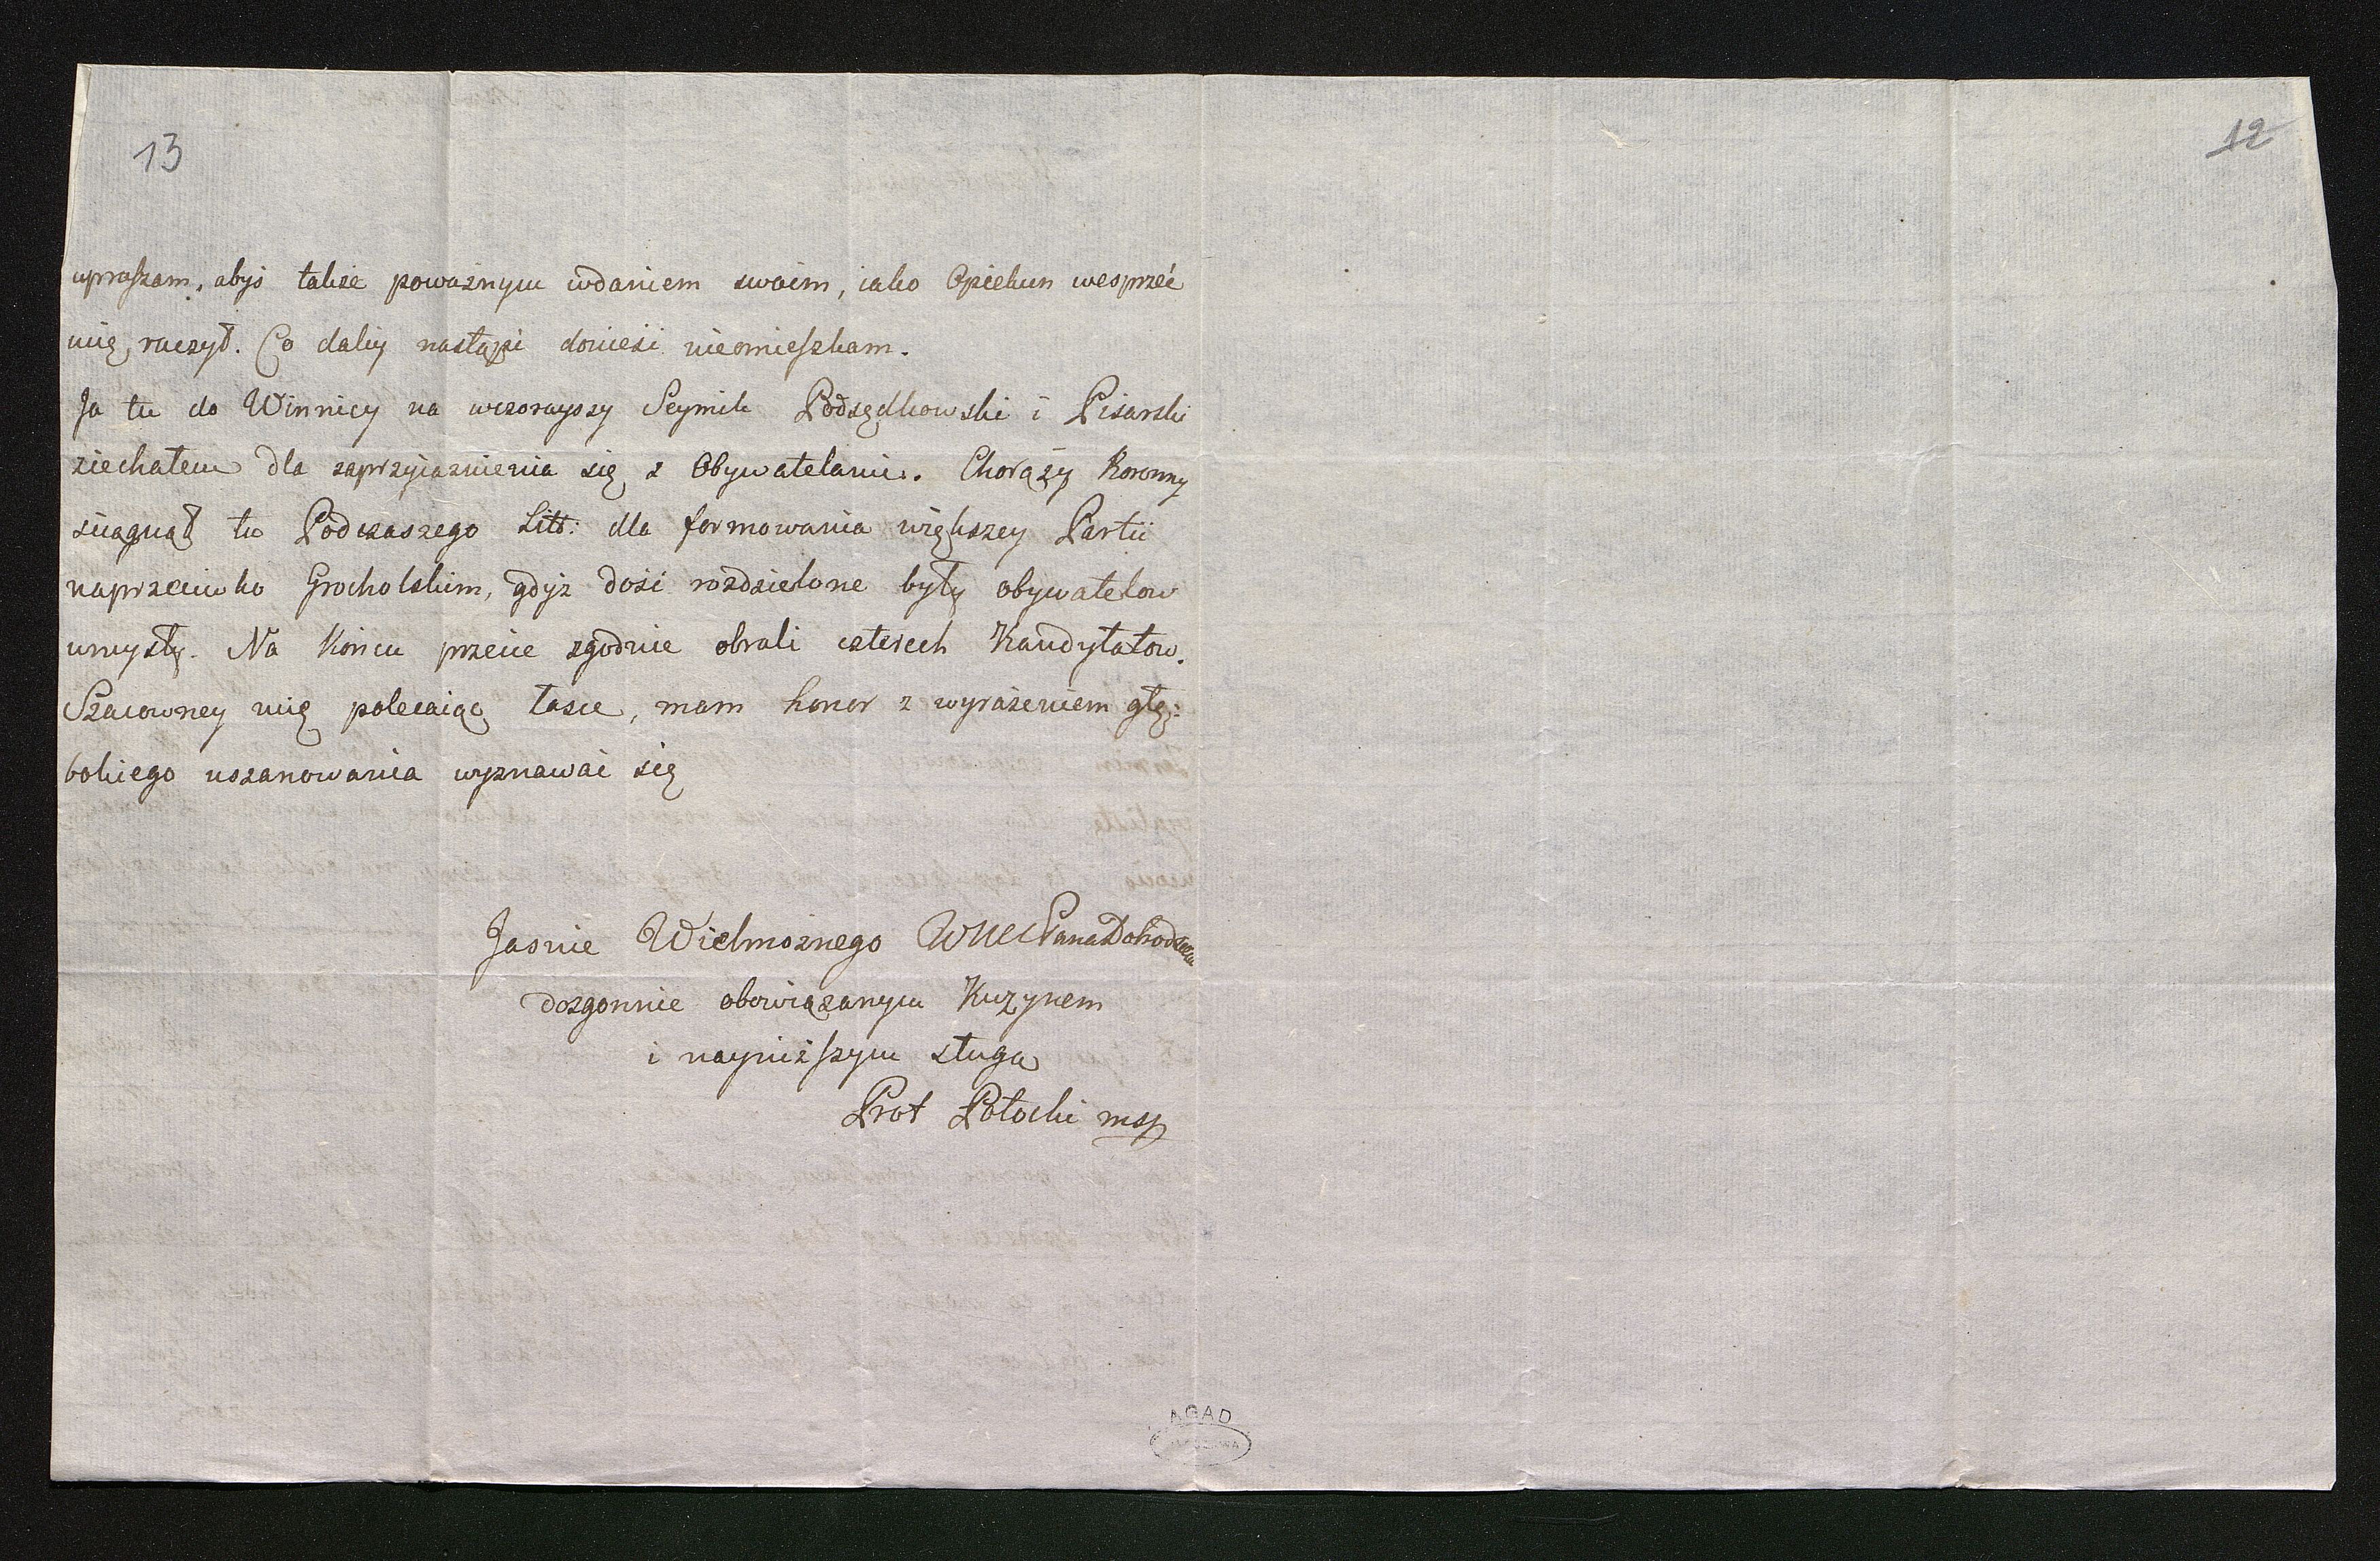 13
12
upraszam, abyś także poważnym wdaniem swoim, iako Opiekun wesprzeć
mię raczył. Co daley nastąpi donieść nieomieszkam.
Ja tu do Winnicy na wczorayszy Seymik Podsędkowski i Pisarski
ziechałem dla zaprzyiaznienia się z Obywatelami. Chorąży Koronny
sciągnął tu Podczaszego Litt: dla formowania większey Partii
naprzeciwko Grocholskim, gdyż dość rozdzielone były obywatelow
umysły. Na Końcu przecie zgodnie obrali czterech Kandydatow.
Szacowney mię polecaiąc łasce, mam honor z wyrażeniem głę:
bokiego uszanowania wyznawać się
Jasnie Wielmożnego WMCPana Dobodzieia
dozgonnie obowiązanym Kuzynem
i nayniższym sługą
Prot Potocki mp
AGAD
WARSZAWA